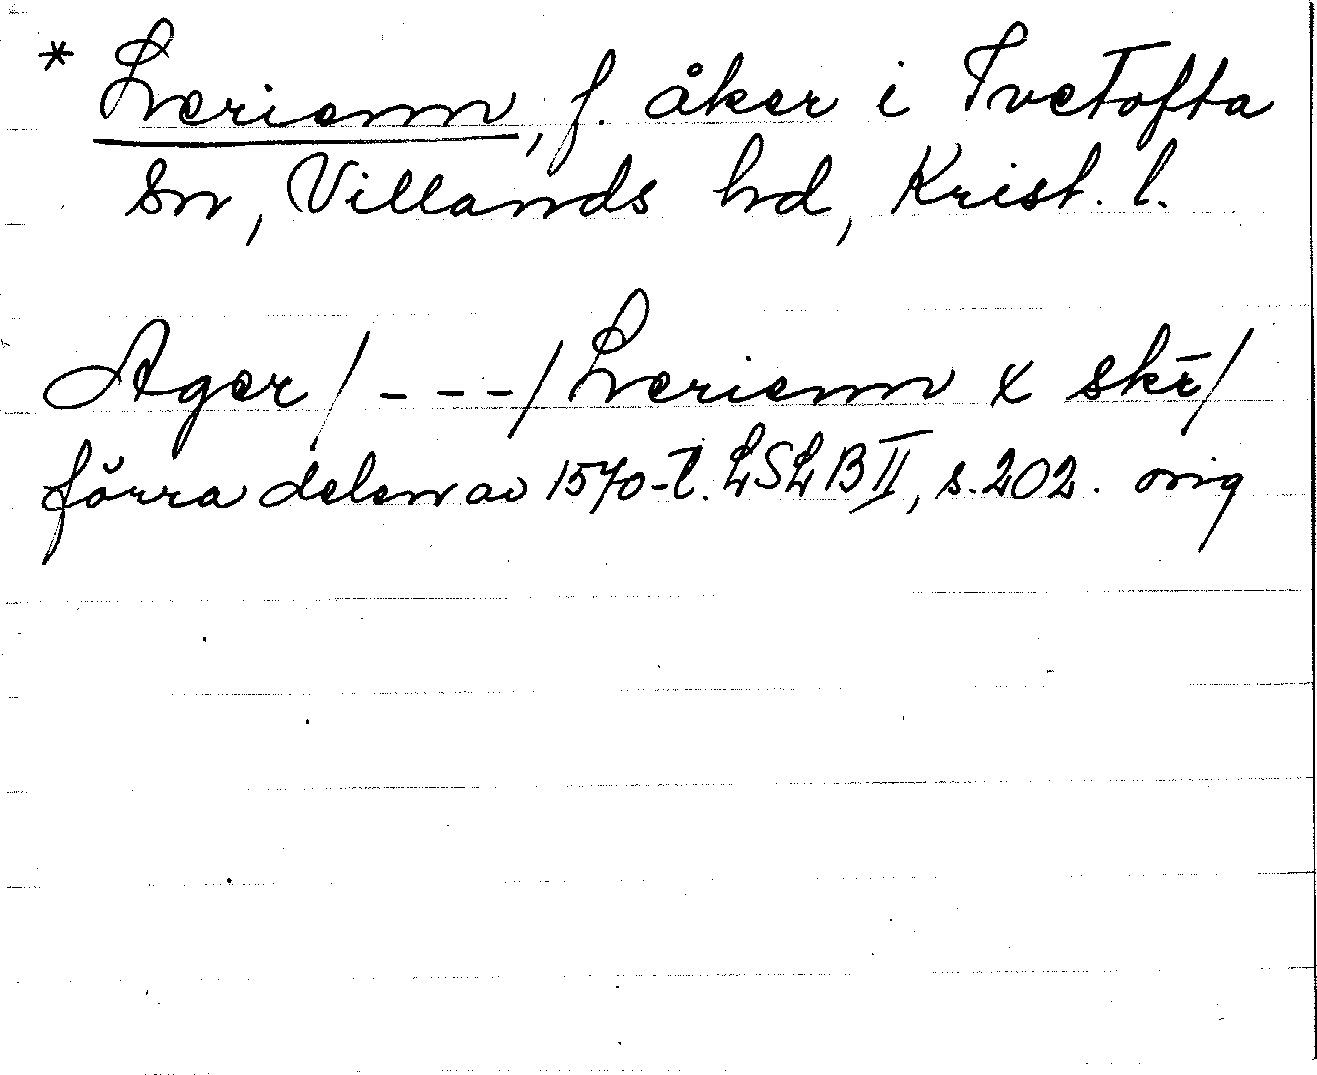 * Lerienn, f. åker i Tvetofta
sn, Villands hd, Krist. l.
Ager/ - - -/ Lerienn x skē/
förra delen av 1570-t. LSLB II, s. 202. orig